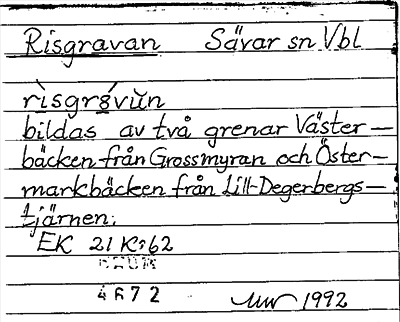 Risgravan Sävar sn Vbl
rìsgrǥ́vŭn
bildas av två grenar Väster-
bäcken från Grossmyran och Öster-
markbäcken från Lill-Degerbergs-
tjärnen.
EK 21 K:62
4672 1992